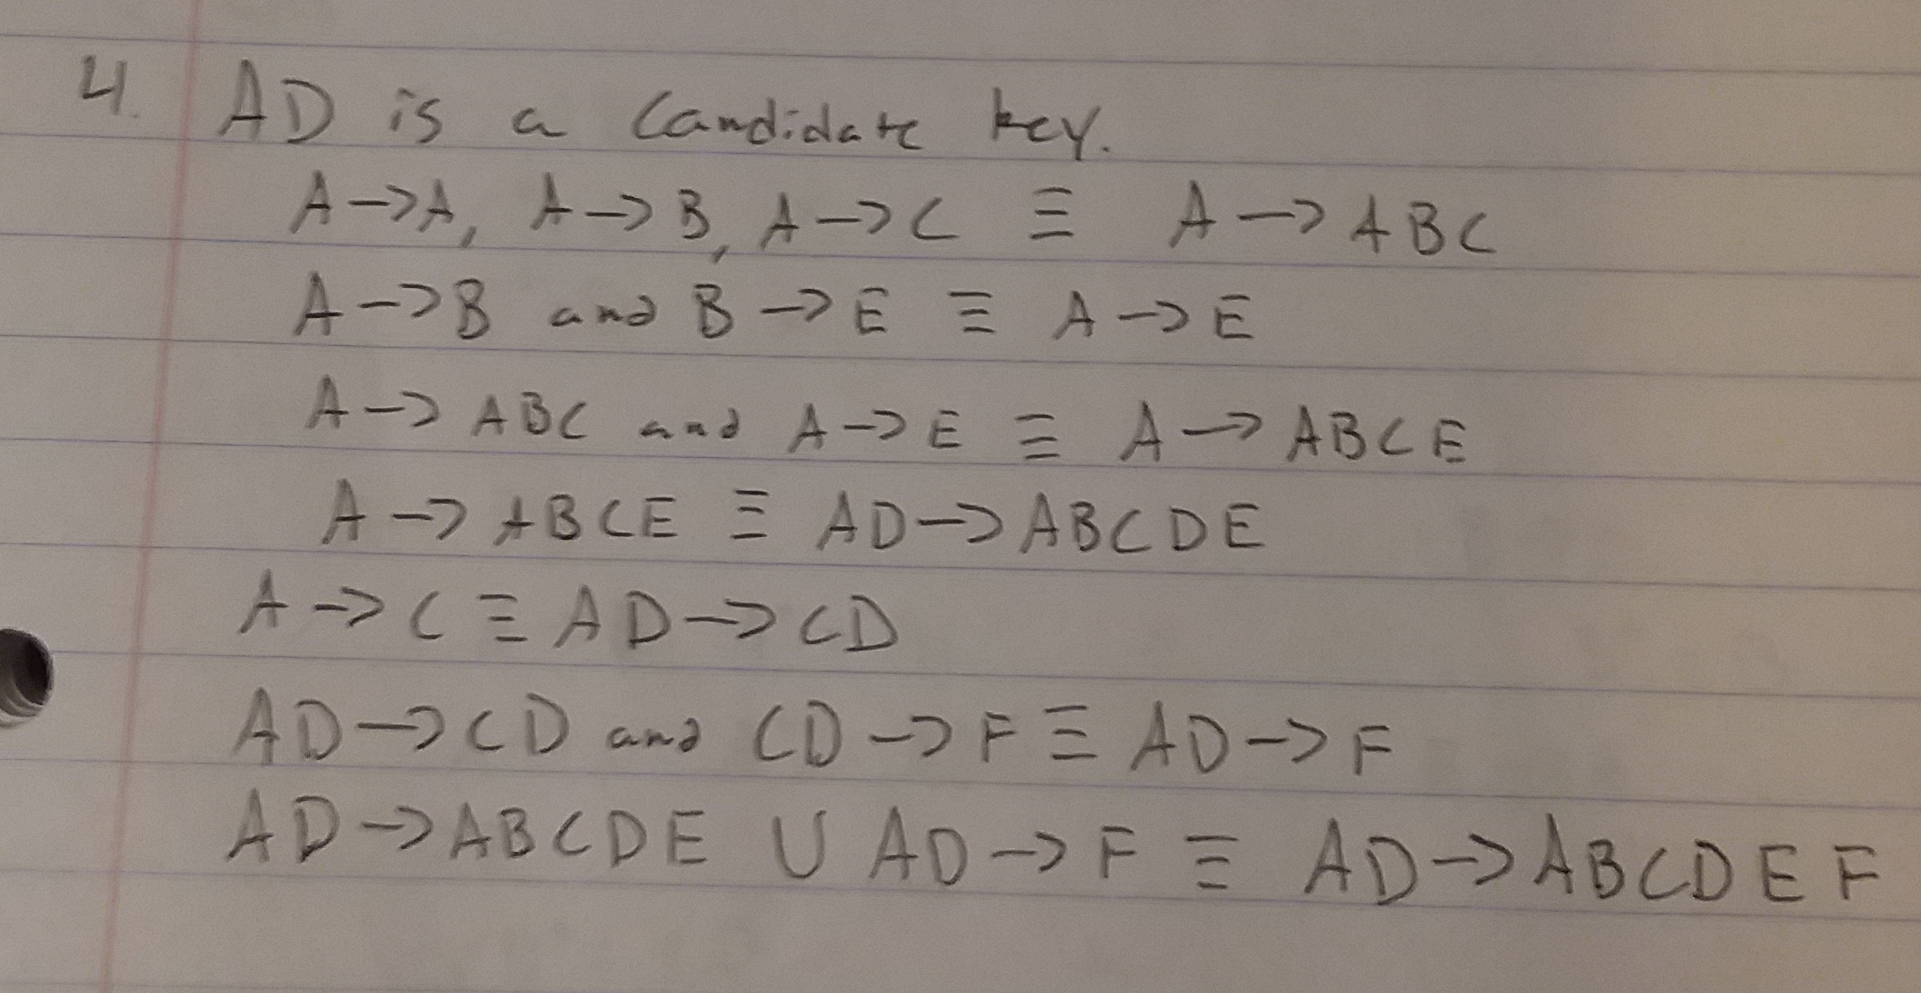 4. AD is a candidate key.
A → A, A → B, A → C ≡ A → ABC
A → B and B → E ≡ A → E
A → ABC and A → E ≡ A → ABCE
A → ABCE ≡ AD → ABCDE
A → C ≡ AD → CD
AD → CD and CD → F ≡ AD → F
AD → ABCDE ∪ AD → F ≡ AD → ABCDEF